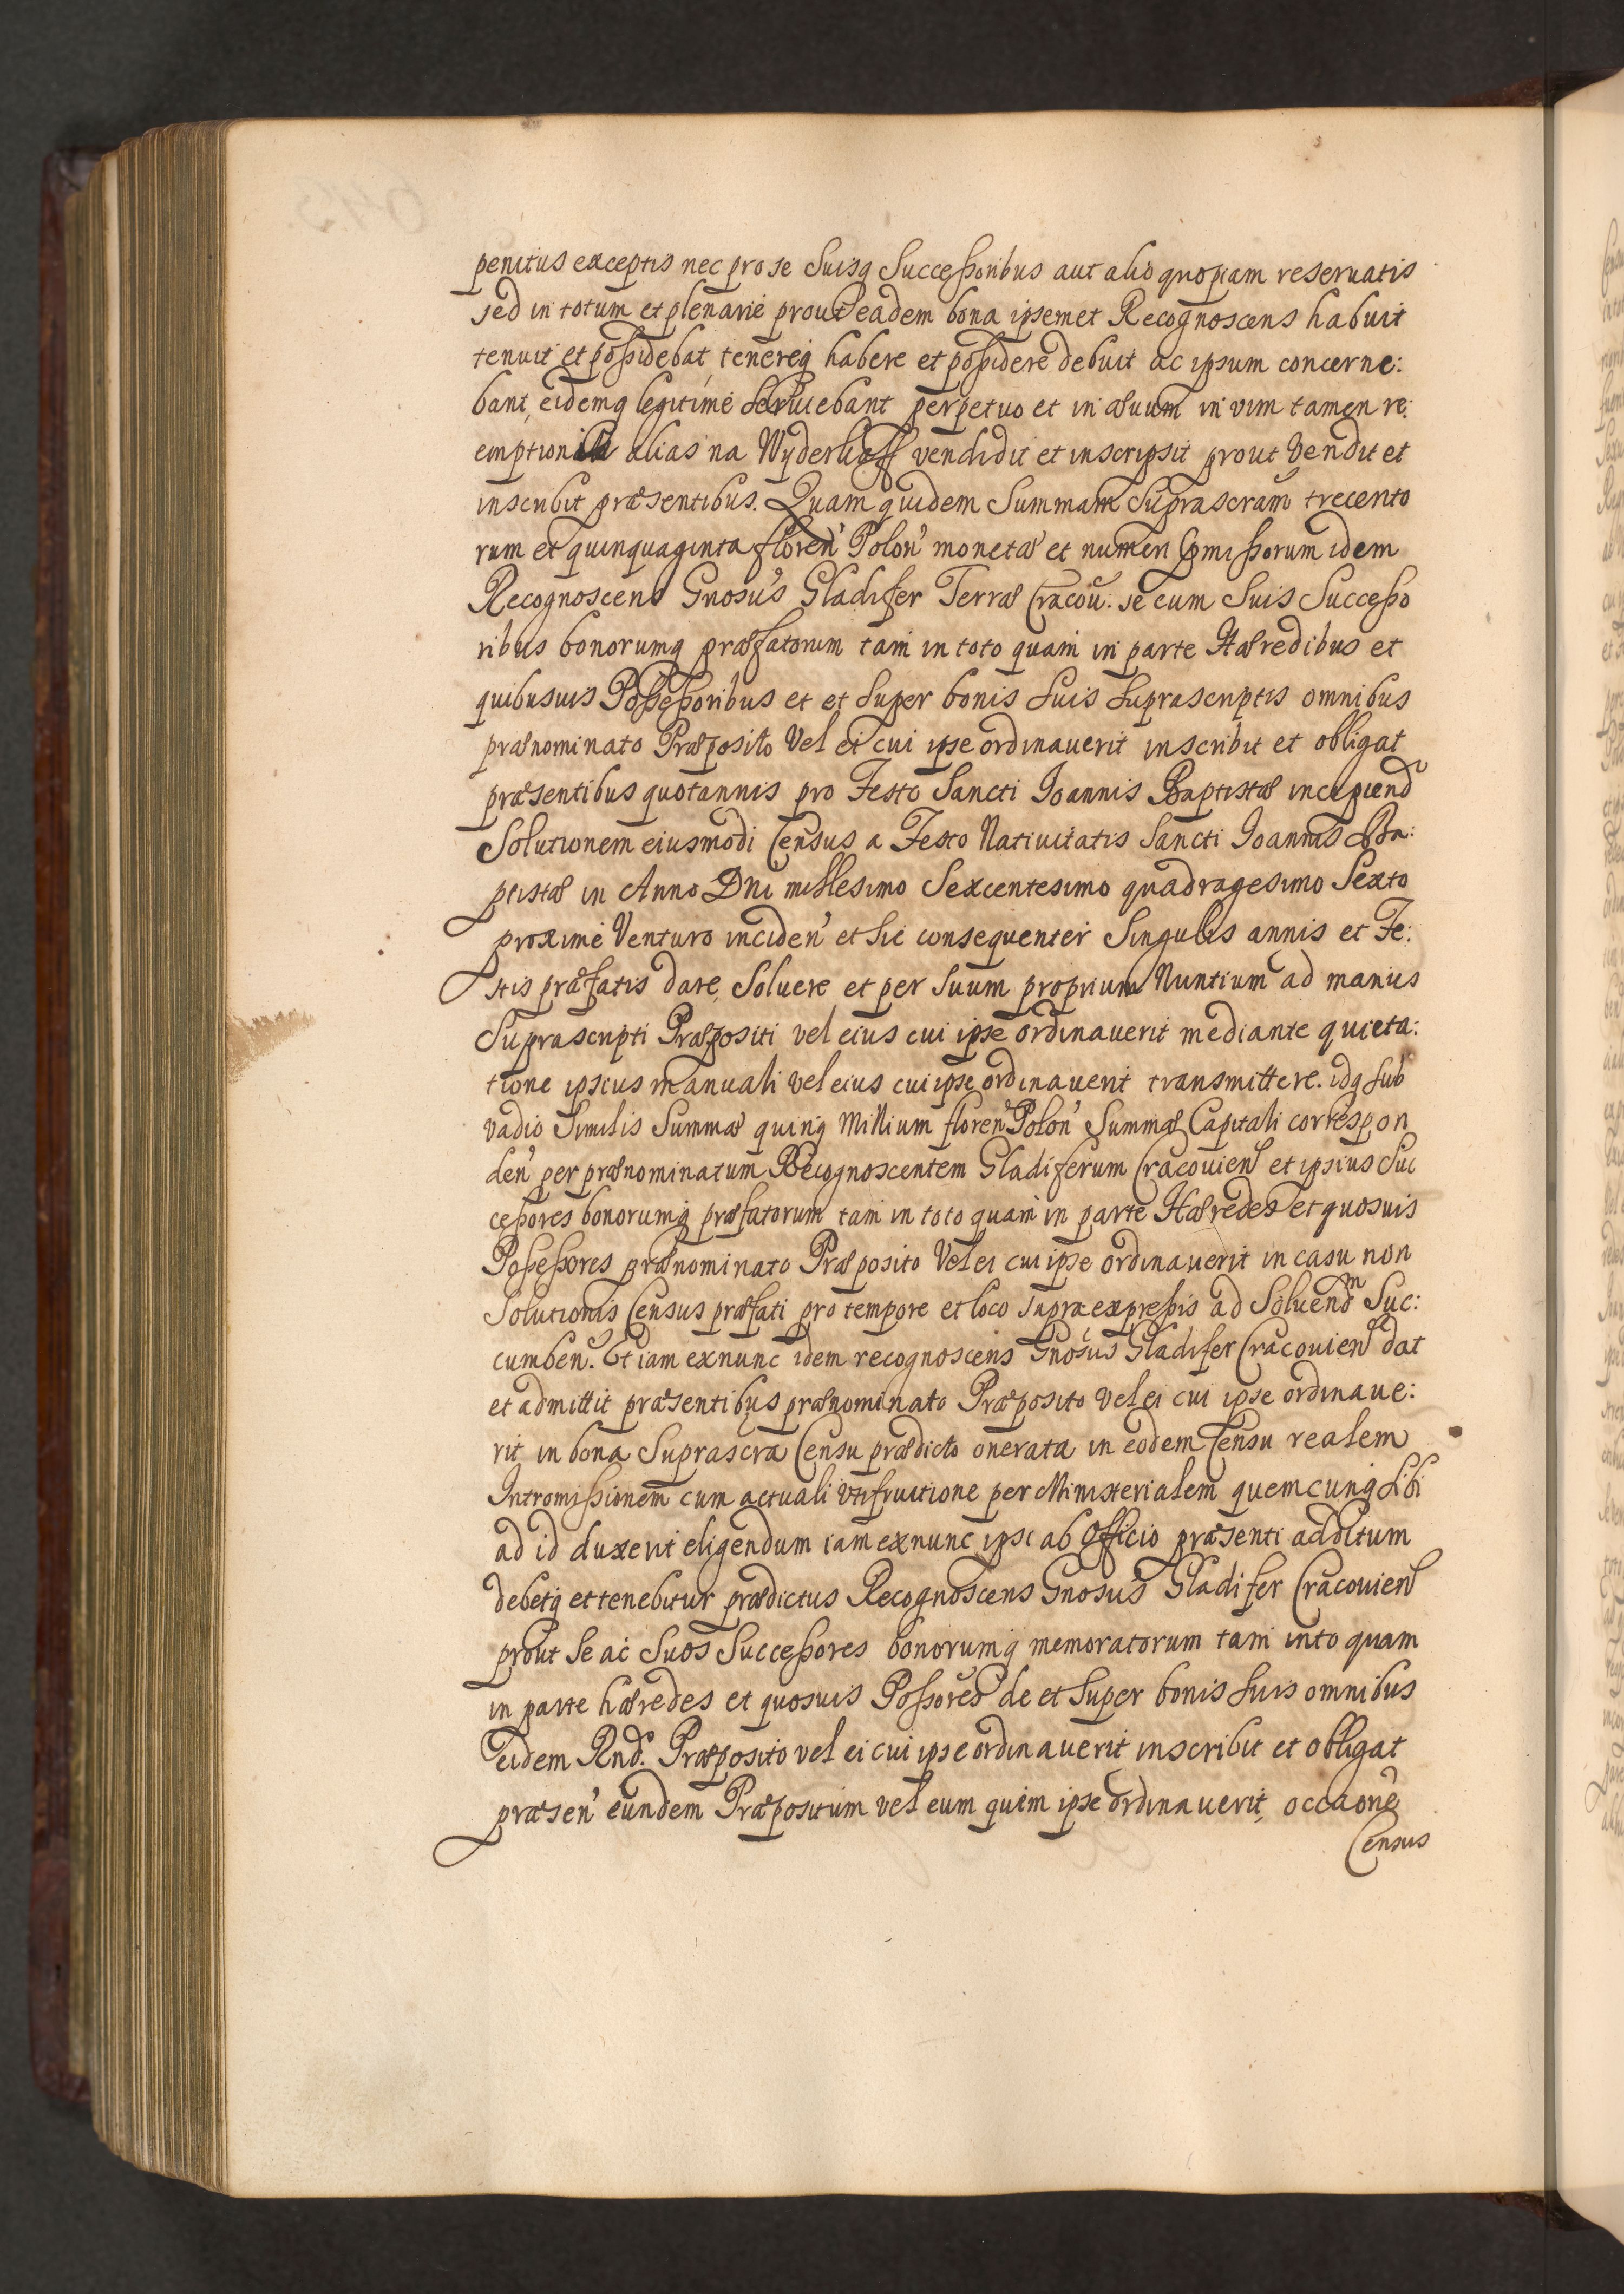 penitus exceptis nec pro se Suisq Successoribus aut alio quopiam reseruatis
sed in totum et plenarie prout eadem bona ipsemet Recognoscens habuit
tenuit et possidebat, tenereq habere et possidere debuit ac ipsum concerne:
bant, eidemq legitime seruiebant perpetuo et in æuum in vim tamen re:
emptionis alias na Wyderkoff vendidit et inscripsit prout Vendit et
inscribit præsentibus. Quam quidem Summam Suprascram trecento
rum et quinquaginta floren Polon monetæ et numeri pmissorum idem
Recognoscens Gnosus Gladifer Terræ Cracou. se cum Suis Successo
ribus bonorumq præfatorum tam in toto quam in parte Hæredibus et
quibusuis Possessoribus et et Super bonis Suis Suprascriptis omnibus
prænominato Præposito Vel ei cui ipse ordinauerit inscribit et obligat
præsentibus quotannis pro Festo Sancti Ioannis Baptistæ incipiend
Solutionem eiusmodi Census a Festo Natiuitatis Sancti Ioannis Ba:
ptistæ in Anno Dni millesimo Sexcentesimo quadragesimo Sexto
proxime Venturo inciden et sic consequenter Singulis annis et Fe:
stis præfatis dare, Soluere et per Suum proprium Nuntium ad manus
Suprascripti Præpositi vel eius cui ipse ordinauerit mediante quieta:
tione ipsius manuali vel eius cui ipse ordinauerit transmittere. idq sub
vadio Similis Summæ quinq Millium floren Polon Summæ Capitali correspon
den per prænominatum Recognoscentem Gladiferum Cracouien et ipsius Suc
cessores bonorumq præfatorum tam in toto quam in parte Hæredes et quosuis
Possessores prænominato Præposito Vel ei cui ipse ordinauerit in casu non
Solutionis Census præfati pro tempore et loco supra expressis ad Soluendm Suc:
cumben. Et iam exnunc idem recognoscens Gnosus Gladifer Cracouien dat
et admittit præsentibus prænominato Præposito Vel ei cui ipse ordinaue:
rit in bona Suprascra Censu prædicto onerata in eodem Censu realem
Intromissionem cum actuali vtifruitione per Ministerialem quemcunq Sibi
ad id duxerit eligendum iam exnunc ipsi ab Officio præsenti additum
debetq et tenebitur prædictus Recognoscens Gnosus Gladifer Cracouien
prout Se ac Suos Successores bonorumq memoratorum tam into quam
in parte hæredes et quosuis Possores de et Super bonis Suis omnibus
eidem Rnd. Præposito vel ei cui ipse ordinauerit inscribit et obligat
præsen eundem Præpositum vel eum quem ipse ordinauerit, occaone
Census